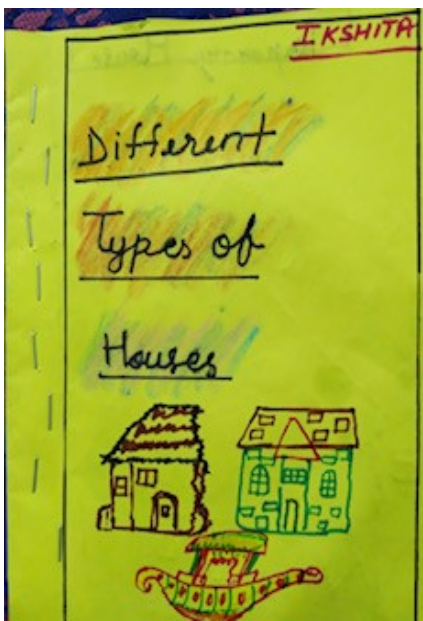 IKSHITA
Different
Types of
Houses